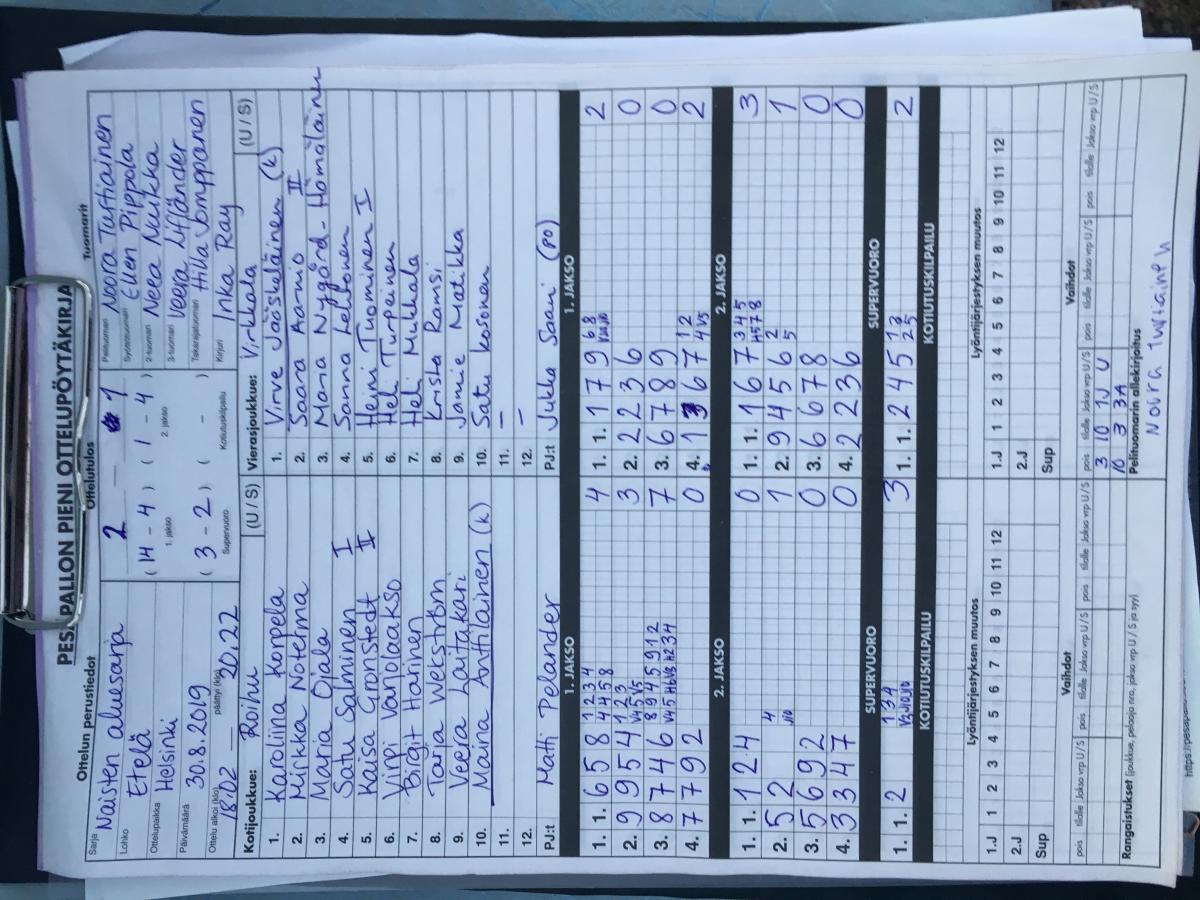 PESÄPALLON PIENI OTTELUPÖYTÄKIRJA
Ottelun perustiedot
Ottelutulos
Tuomarit
Sarja Naisten aluesarja
Lohko Etelä
Ottelupaikka Helsinki
Päivämäärä 30.8.2019
Ottelu alkoi (klo) 18.02 päättyi (klo) 20.22
2 — 1
(14 - 4) (1 - 4)
1. jakso 2. jakso
(3 - 2) ( - )
Supervuoro Kotiutuskilpailu
Pelituomari Noora Tustiainen
Syöttötuomari Ellen Pippola
2-tuomari Neea Nuikka
3-tuomari Veera Lifländer
Takarajatuomari Hilla Jomppanen
Kirjuri Inka Ray
Kotijoukkue: Roihu (U / S)
1. Karoliina Korpela
2. Mirkka Noterma
3. Maria Ojala
4. Satu Salminen I
5. Kaisa Gronstedt II
6. Virpi Varjolaakso
7. Birgit Harinen
8. Tarja Wekström
9. Veera Laitakari
10. Maina Anttilainen (k)
11.
12.
PJ:t Matti Pelander
Vierasjoukkue: Virkkala (U / S)
1. Virve Jääskeläinen (k)
2. Saara Aarnio II
3. Maria Nygård-Hämäläinen
4. Sanna Lehtonen
5. Heini Tuominen I
6. Heli Turpeinen
7. Heli Mukkala
8. Krista Ramsi
9. Jannie Matikka
10. Satu Kosonen
11. —
12. —
PJ:t Jukka Saari (po)
1. JAKSO
1. 1. 6 5 8 1 2 3 4 4
4 4 5 8
2. 9 9 5 4 1 2 3 3
V4 5 V5
3. 8 7 4 6 8 9 4 5 9 1 2 7
4. 7 7 9 2 0
1. JAKSO
1. 1. 1 7 9 6 8 2
2. 2 2 3 6 0
3. 6 7 8 9 0
4. 1 3 6 7 1 2 2
4 V5
2. JAKSO
1. 1. 1 2 4 0
2. 5 2 4 1
V10
3. 5 6 9 2 0
4. 3 3 4 7 0
2. JAKSO
1. 1. 1 6 7 3 4 5 3
4 5 7 8
2. 9 4 5 6 2 1
5
3. 6 6 7 8 0
4. 2 2 3 6 0
SUPERVUORO
1. 1. 2 1 3 4 3
SUPERVUORO
1. 1. 2 4 5 1 3 2
2 5
KOTIUTUSKILPAILU
KOTIUTUSKILPAILU
Lyöntijärjestyksen muutos
1.J 1 2 3 4 5 6 7 8 9 10 11 12
2.J
Sup
Lyöntijärjestyksen muutos
1.J 1 2 3 4 5 6 7 8 9 10 11 12
2.J
Sup
Vaihdot
pois tilalle Jakso vrp U / S pois tilalle Jakso vrp U / S pois tilalle Jakso vrp U / S
Vaihdot
pois tilalle Jakso vrp U / S pois tilalle Jakso vrp U / S pois tilalle Jakso vrp U / S
3 10 1J U
10 3 3A
Rangaistukset (joukkue, pelaaja nro, jakso vrp U / S ja syy)
Pelituomarin allekirjoitus
Noora Tustiainen
https://pesapa